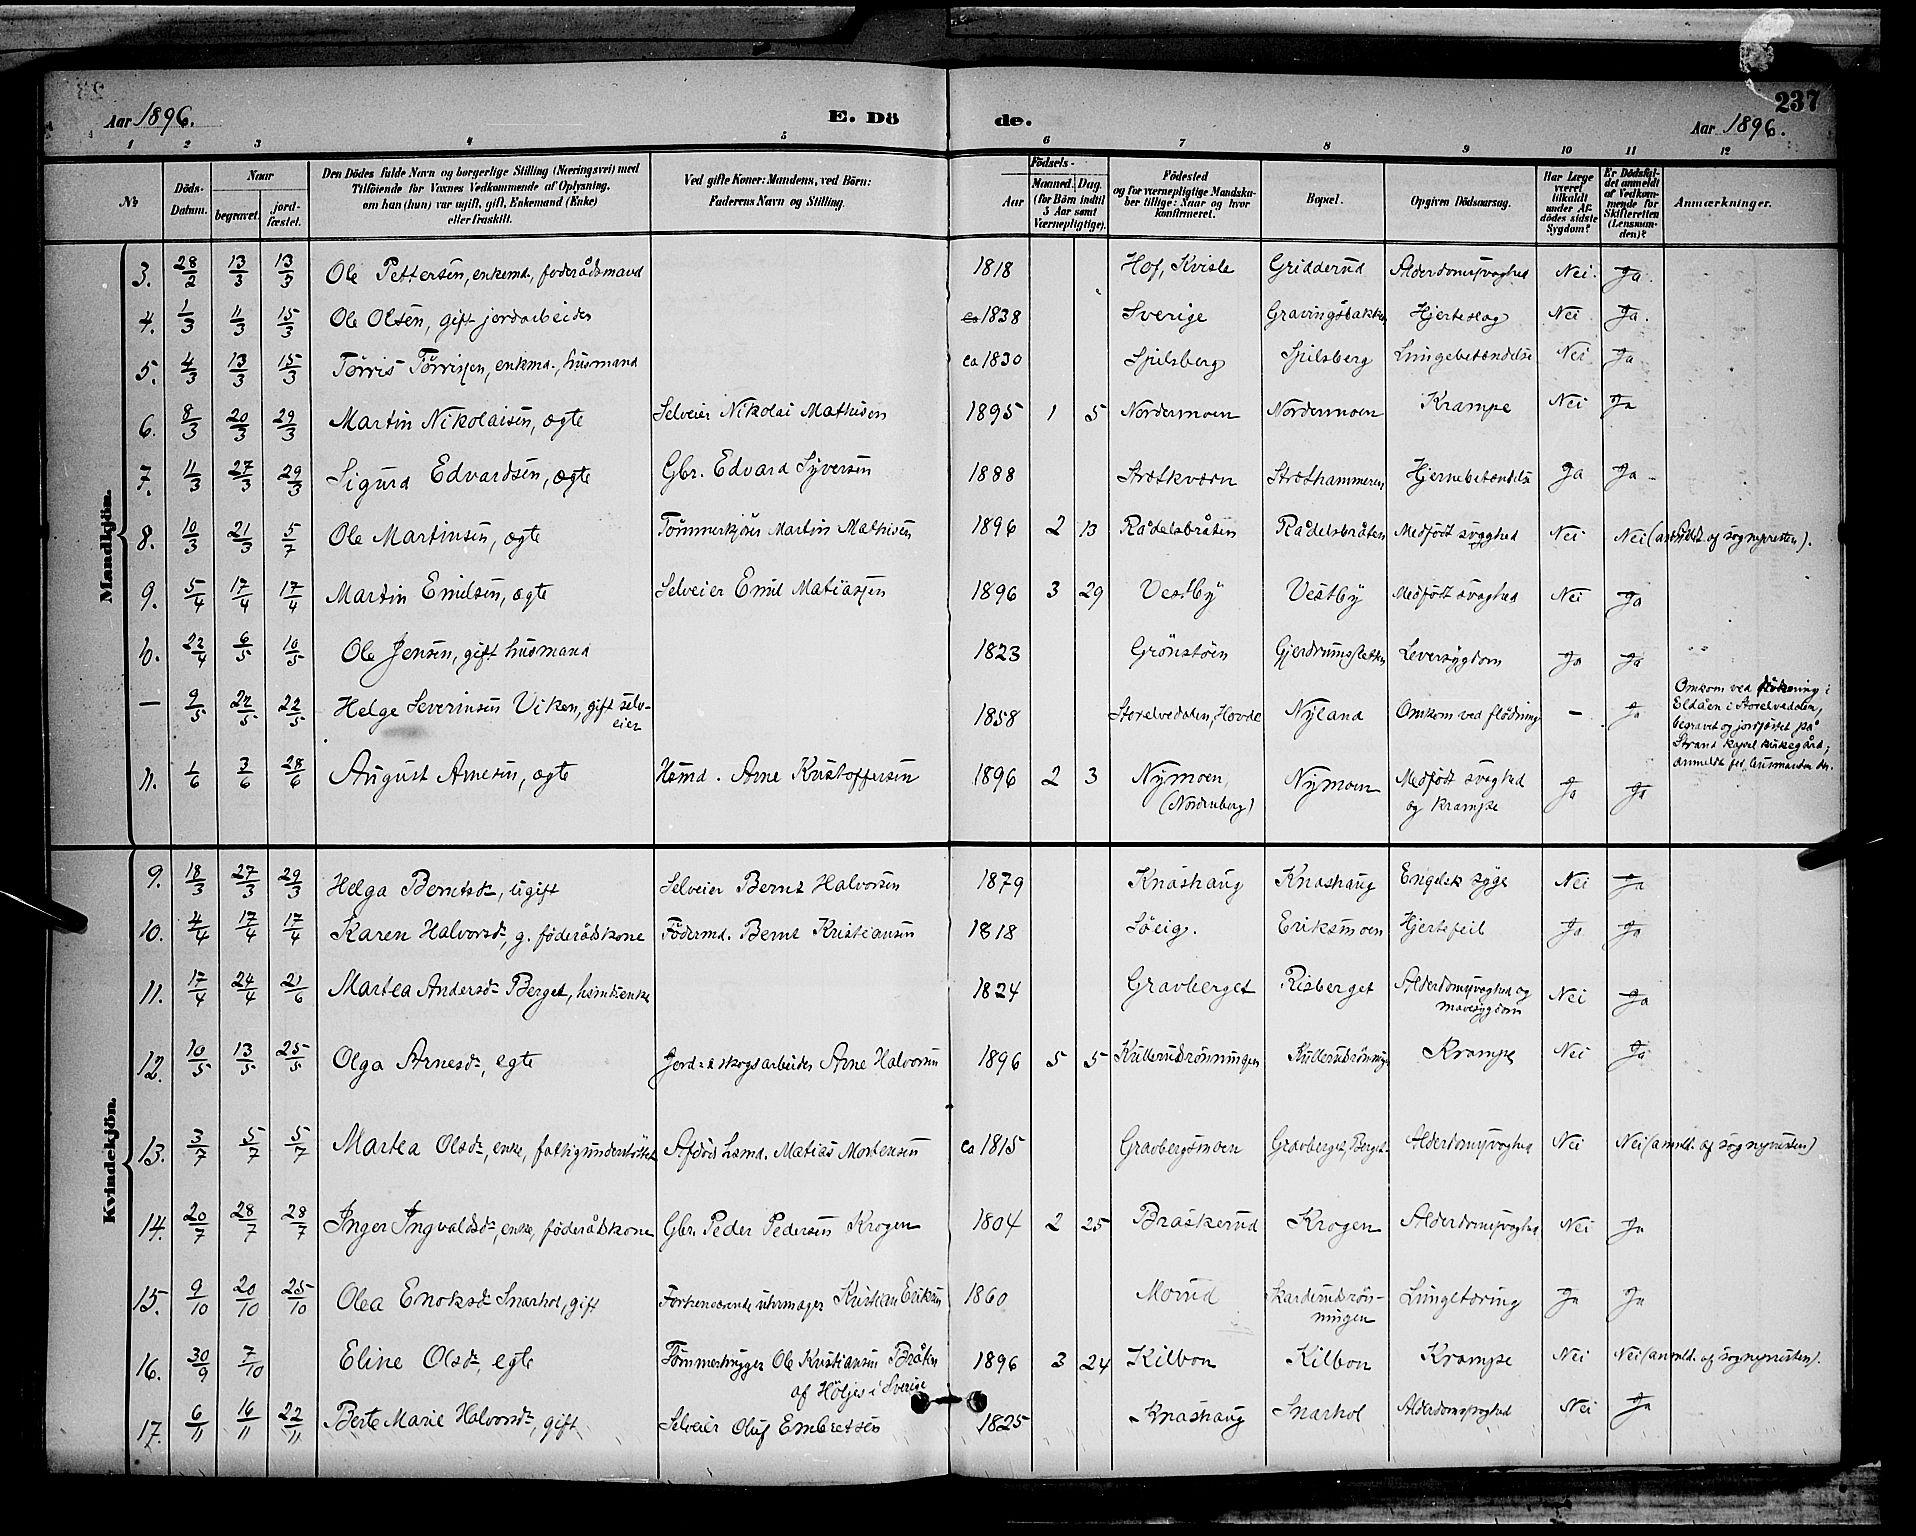 237
Aar 1896. E. Dö de. Aar 1896.
1 2 3 4 5 6 7 8 9 10 11 12
№ Döds-Datum. Naar begravet. jord-fæstet. Den Dödes fulde Navn og borgerlige Stilling (Næringsvei) med Tilföiende for Voxnes Vedkommende af Oplysning, om han (hun) var ugift, gift, Enkemand (Enke) eller fraskilt. Ved gifte Koner: Mandens, ved Börn: Faderens Navn og Stilling. Födsels- Aar Maaned. Dag. (for Börn indtil 5 Aar samt Værnepligtige). Födested og for værnepligtige Mandska-ber tillige: Naar og hvor konfirmeret. Bopæl. Opgiven Dödsaarsag. Har Læge været tilkaldt under Af-dödes sidste Sygdom? Er Dödsfal-det anmeldt af Vedkom-mende for Skifteretten (Lensman-den)? Anmærkninger.
Mandkjön.
3. 28/2 13/3 13/3 Ole Pettersen, enkemd., foderådsmand 1818 Hof, Kvisle Gridderud Alderdomssvaghed Nei. Ja.
4. 1/3 11/3 15/3 Ole Olsen, gift jordarbeider ca 1838 Sverige Gravingsbakken Hjerteslag Nei Ja.
5. 4/3 13/3 15/3 Törris Törrisen, enkmd., husmand ca 1830 Spilsberg Spilsberg Lungebetændelse Nei Ja
6. 8/3 20/3 29/3 Martin Nikolaisen, ægte Selveier Nikolai Mathisen 1895 1 5 Nordermoen Nordermoen Krampe Nei Ja
7. 11/3 27/3 29/3 Sigurd Edvardsen, ægte Gbr. Edvard Syversen 1888 Strætkværn Stræthammeren Hjernebetændelse Ja Ja
8. 10/3 21/3 5/7 Ole Martinsen, ægte Tömmerkjörer Martin Mathisen 1896 2 13 Rådelsbråten Rådelsbråten Medfödt svaghed Nei Nei (anmeldt af sognepresten).
9. 5/4 17/4 17/4 Martin Emilsen, ægte Selveier Emil Matiasen 1896 3 29 Vestby Vestby Medfödt svaghed Nei Ja
10. 22/4 6/5 10/5 Ole Jensen, gift husmand 1823 Grönstöen Gjerdrumsletten Leversygdom Ja Ja
— 9/5 22/5 22/5 Helge Severinsen Viken, gift selv-eier 1858 Storelvedalen, Hovde Nyland Omkom ved flödning – Ja Omkom ved flödning i Eldåen i Storelvedalen, begravet og jordfæstet på Strand kapel kirkegård; anmeldt for lensmanden der.
11. 1/6 3/6 28/6 August Arnesen, ægte Hsmd. Arne Kristoffersen 1896 2 3 Nymoen, (Nordenberg) Nymoen Medfödt svaghed og krampe Ja Ja
Kvindekjön.
9. 18/3 27/3 29/3 Helga Berntsdr, ugift Selveier Bernt Halvorsen 1879 Knashaug Knashaug Engelsk syge Nei Ja
10. 4/4 17/4 17/4 Karen Halvorsdr, g. föderådskone Födermd. Bernt Kristiansen 1818 Söeig. Eriksmoen Hjertefeil Ja Ja
11. 17/4 24/4 21/6 Martea Andersdr Berget, hsmdsenke 1824 Gravberget Risberget Alderdomssvaghed og mavesygdom Nei Ja
12. 10/5 13/5 25/5 Olga Arnesdr, egte Jord- & skogsarbeider Arne Halvorsen 1896 5 5 Kullerudrönningen Kullerudrönningen Krampe Nei Ja
13. 3/7 5/7 5/7 Martea Olsdr, enke, fattigunderstöttet Afdöd hsmd. Matias Mortensen ca 1815 Gravbergsmoen Gravberget, Berget Alderdomssvaghed Nei Nei (anmeldt. af sognepresten)
14. 20/7 28/7 28/7 Inger Ingvaldsdr, enke, föderådskone Gbr. Peder Pedersen Krogen 1804 2 25 Braskerud Krogen Alderdomssvaghed Nei Ja
15. 9/10 20/10 25/10 Olea Enoksdr Snarhol, gift Forhenværende uhrmager Kristian Eriksen 1860 Morud Skarderudsrön-ningen Lungetæring Ja Ja
16. 30/9 7/10 Eline Olsdr, egte Tömmerhugger Ole Kristiansen Bråten af Höljes i Sverige 1896 3 24 Kilbon Kilbon Krampe Nei Nei (anmeldt. af sognepresten).
17. 6/11 16/11 22/11 Berte Marie Halvorsdr, gift Selveier Oluf Embretsen 1825 Knashaug Snarhol Alderdomssvaghed Nei Ja